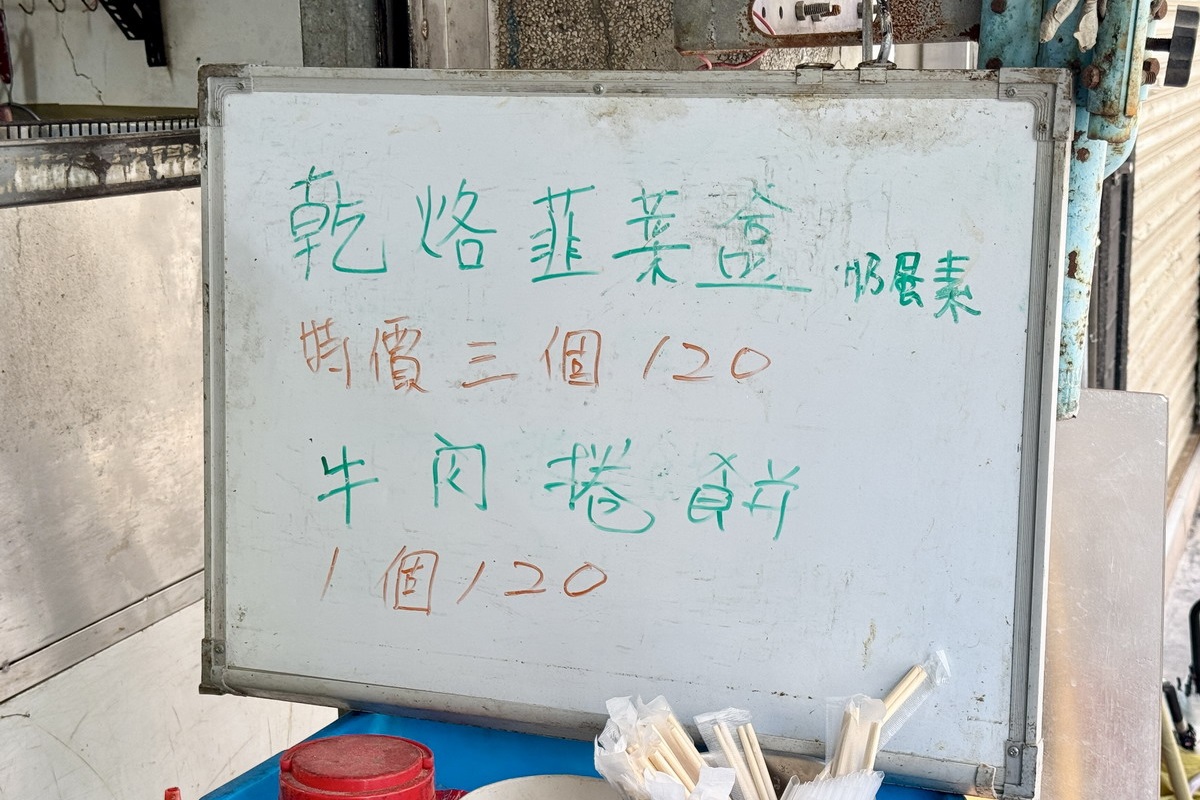 乾烙韮菜盒 奶蛋素
特價三個120
牛肉捲餅
1個120